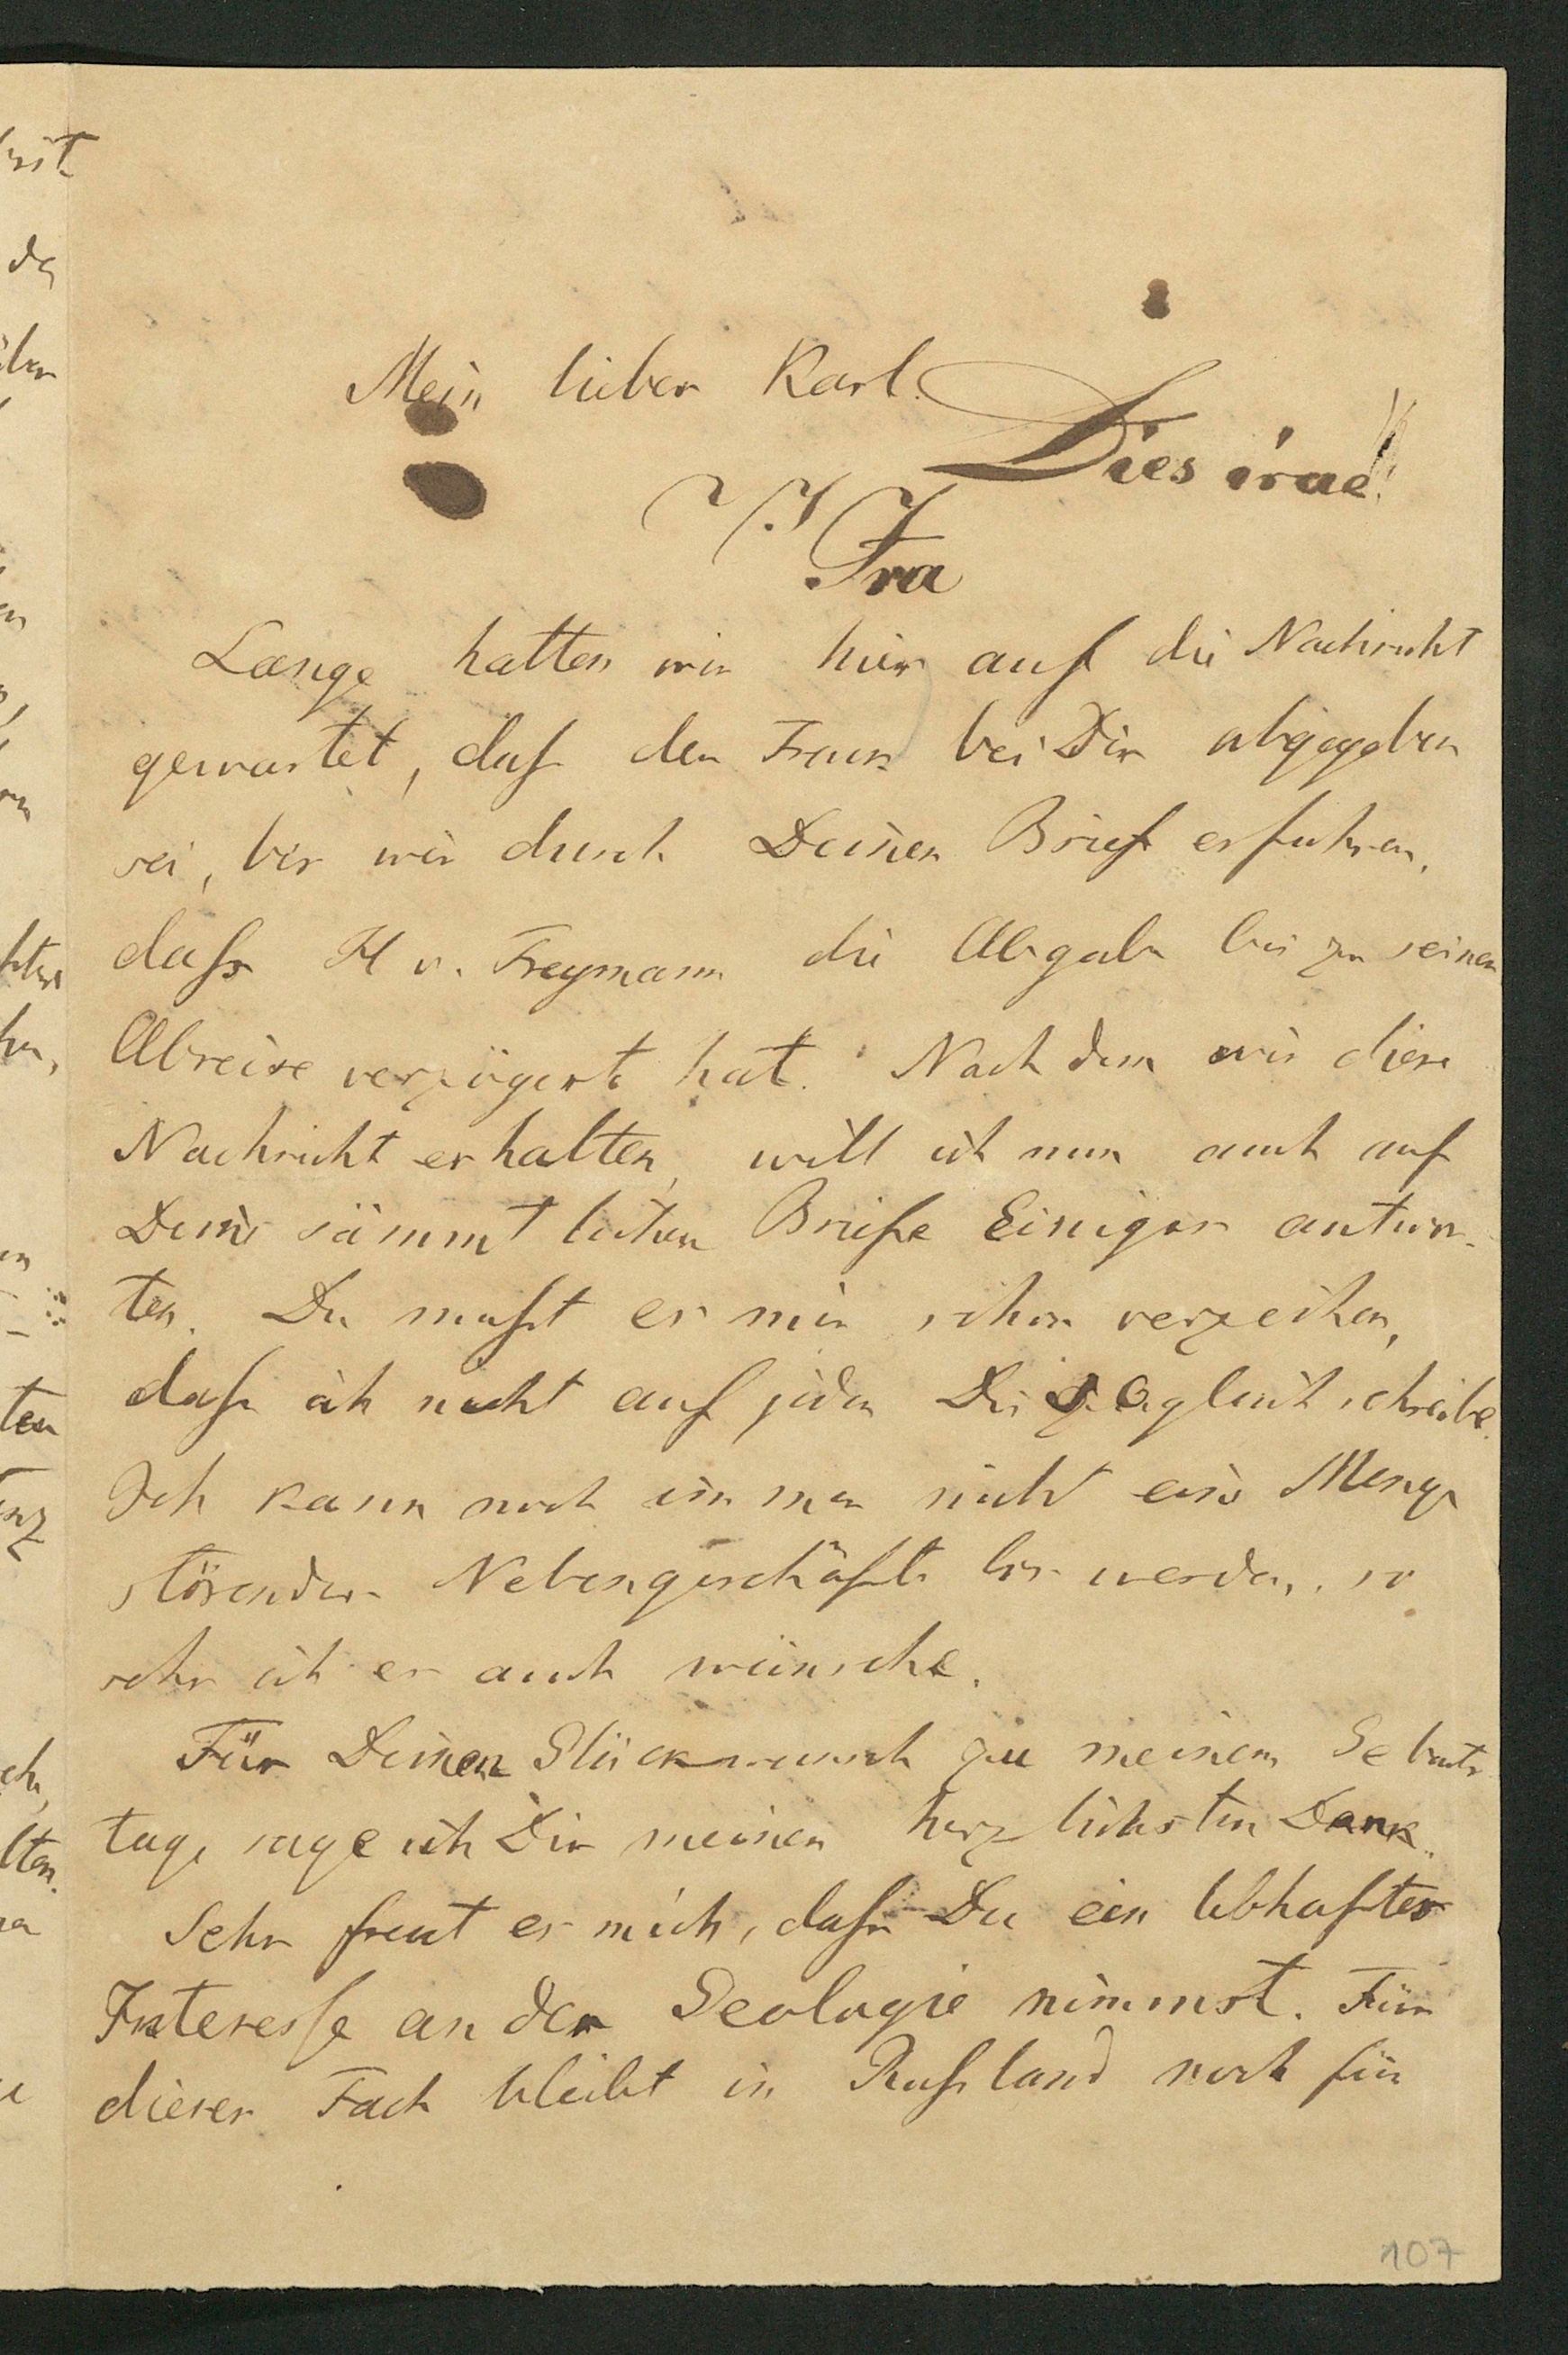 Mein lieber Karl.
Dies irae!
Ira
Lange hatten wir hier auf die Nachricht
gewartet, daß der bei Dir abgegeben
sei, bis wir durch Deinen Brief erfuhren,
dass H v. Freymann die Abgabe bis zu seiner
Abreise verzögert hat. Nachdem wir diese
Nachricht erhalten, will ich nun auch auf
Deine sämmtlichen Briefe Einiges antwor-
ten. Du mußt es mir schon verzeihen,
daß ich nicht auf jeden Dir sogleich schreibe.
Ich kann noch immer nicht eine Menge
störender Nebengeschäfte los werden, so
sehr ich es auch wünsche.
Für Deinen Glückwunsch zu meinem Geburts
tage sage ich Dir meinen herzlichsten Dank.
Sehr freut es mich, daß Du ein lebhaftes
Interesse an der Geologie nimmst. Für
dieses Fach bleibt in Rußland noch für
107
rit
da
über
en
ten
ch,
lten.